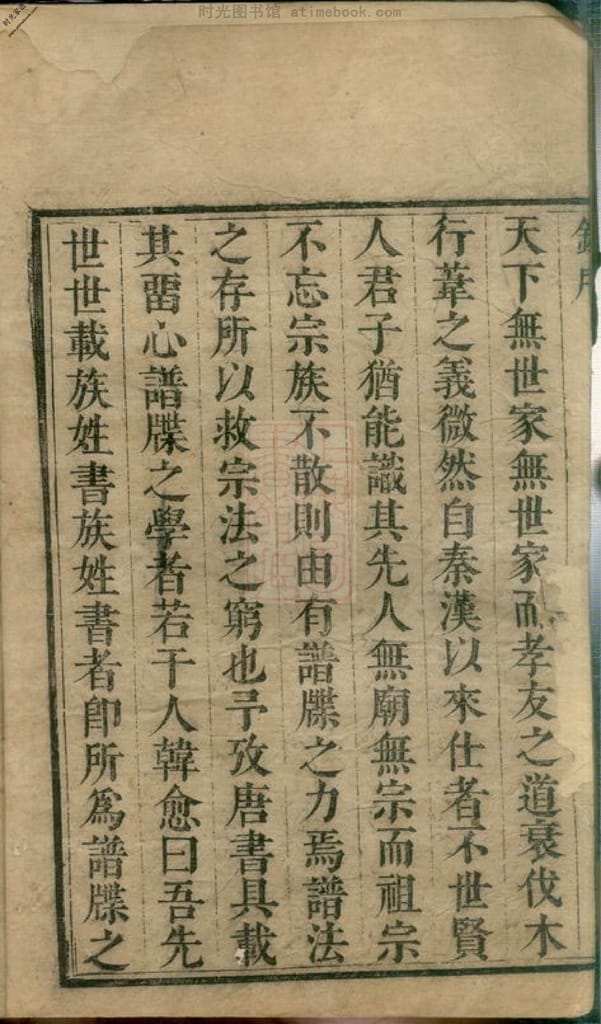 时光图书馆 atimebook.com
天下無世家無世家而孝友之道衰伐木
行葦之義微然自秦漢以來仕者不世賢
人君子猶能識其先人無廟無宗而祖宗
不忘宗族不散則由有譜牒之力焉譜法
之存所以救宗法之窮也予攷唐書具載
其畱心譜牒之學者若干人韓愈曰吾先
世世載族姓書族姓書者卽所爲譜牒之